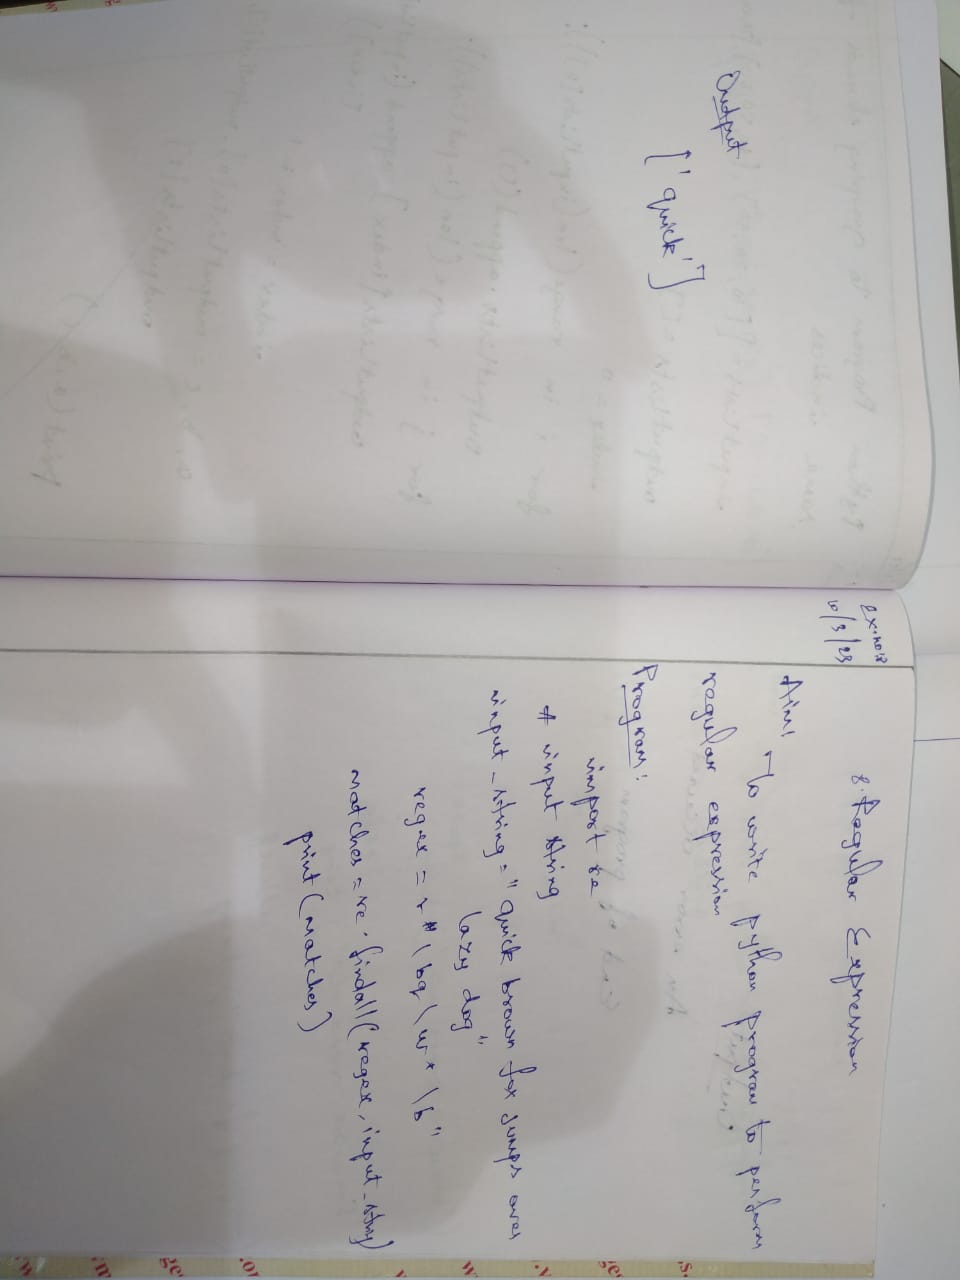 Output
['quick']
Ex.no:8
10/3/23
8. Regular Expression
Aim:
To write python program to perform
regular expression
Program:
import re
# input string
input_string = "quick brown fox jumps over
lazy dog"
regex = r"\bq\w*\b"
matches = re.findall(regex, input_string)
print(matches)